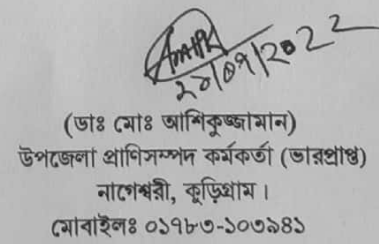 ২০/০৭/২০২২
(ডাঃ মোঃ আশিকুজ্জামান)
উপজেলা প্রাণিসম্পদ কর্মকর্তা (ভারপ্রাপ্ত)
নাগেশ্বরী, কুড়িগ্রাম।
মোবাইলঃ ০১৭৮৩-১০৩৯৪১